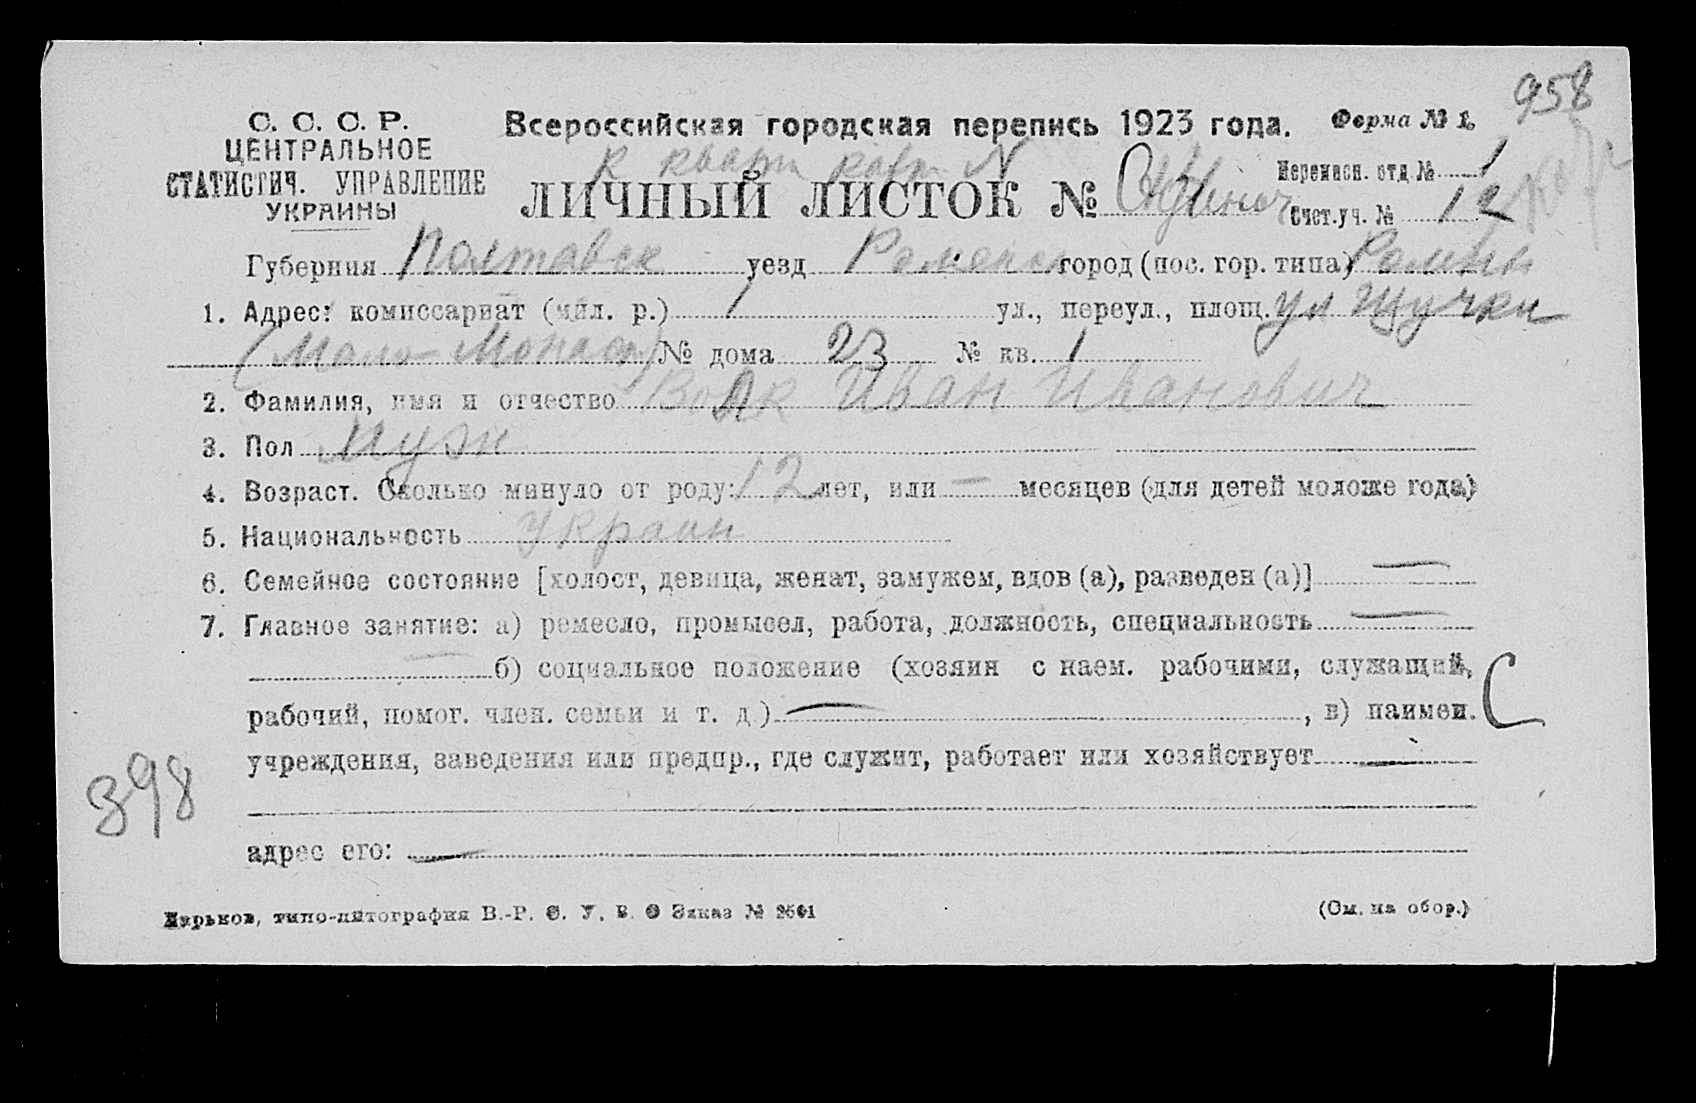 958
С. С. С. Р.
ЦЕНТРАЛЬНОЕ
СТАТИСТИЧ. УПРАВЛЕНИЕ
УКРАИНЫ
Всероссийская городская перепись 1923 года. Форма № 1.
к кварт карт N
ЛИЧНЫЙ ЛИСТОК №
Переписн. отд. № 1
Счет. уч. № 12
Губерния Полтавск уезд Роменск город (пос. гор. типа) Ромны
1. Адрес: комиссариат (мил. р.) 1 ул., переул., площ. ул Щучки
(Мало Монаст) № дома 23 № кв. 1
2. Фамилия, имя и отчество Иван Иванович
3. Пол Муж
4. Возраст. Сколько минуло от роду: 12 лет, или — месяцев (для детей моложе года)
5. Национальность Украин
6. Семейное состояние [холост, девица, женат, замужем, вдов (а), разведен (а)] —
7. Главное занятие: а) ремесло, промысел, работа, должность, специальность —
— б) социальное положение (хозяин с наем. рабочими, служащий,
рабочий, помог. член. семьи и т. д.) — , в) наимен. С
учреждения, заведения или предпр., где служит, работает или хозяйствует —
398
адрес его: —
Харьков, типо-литография В.-Р. С. У. В. О Заказ №
(См. на обор.)